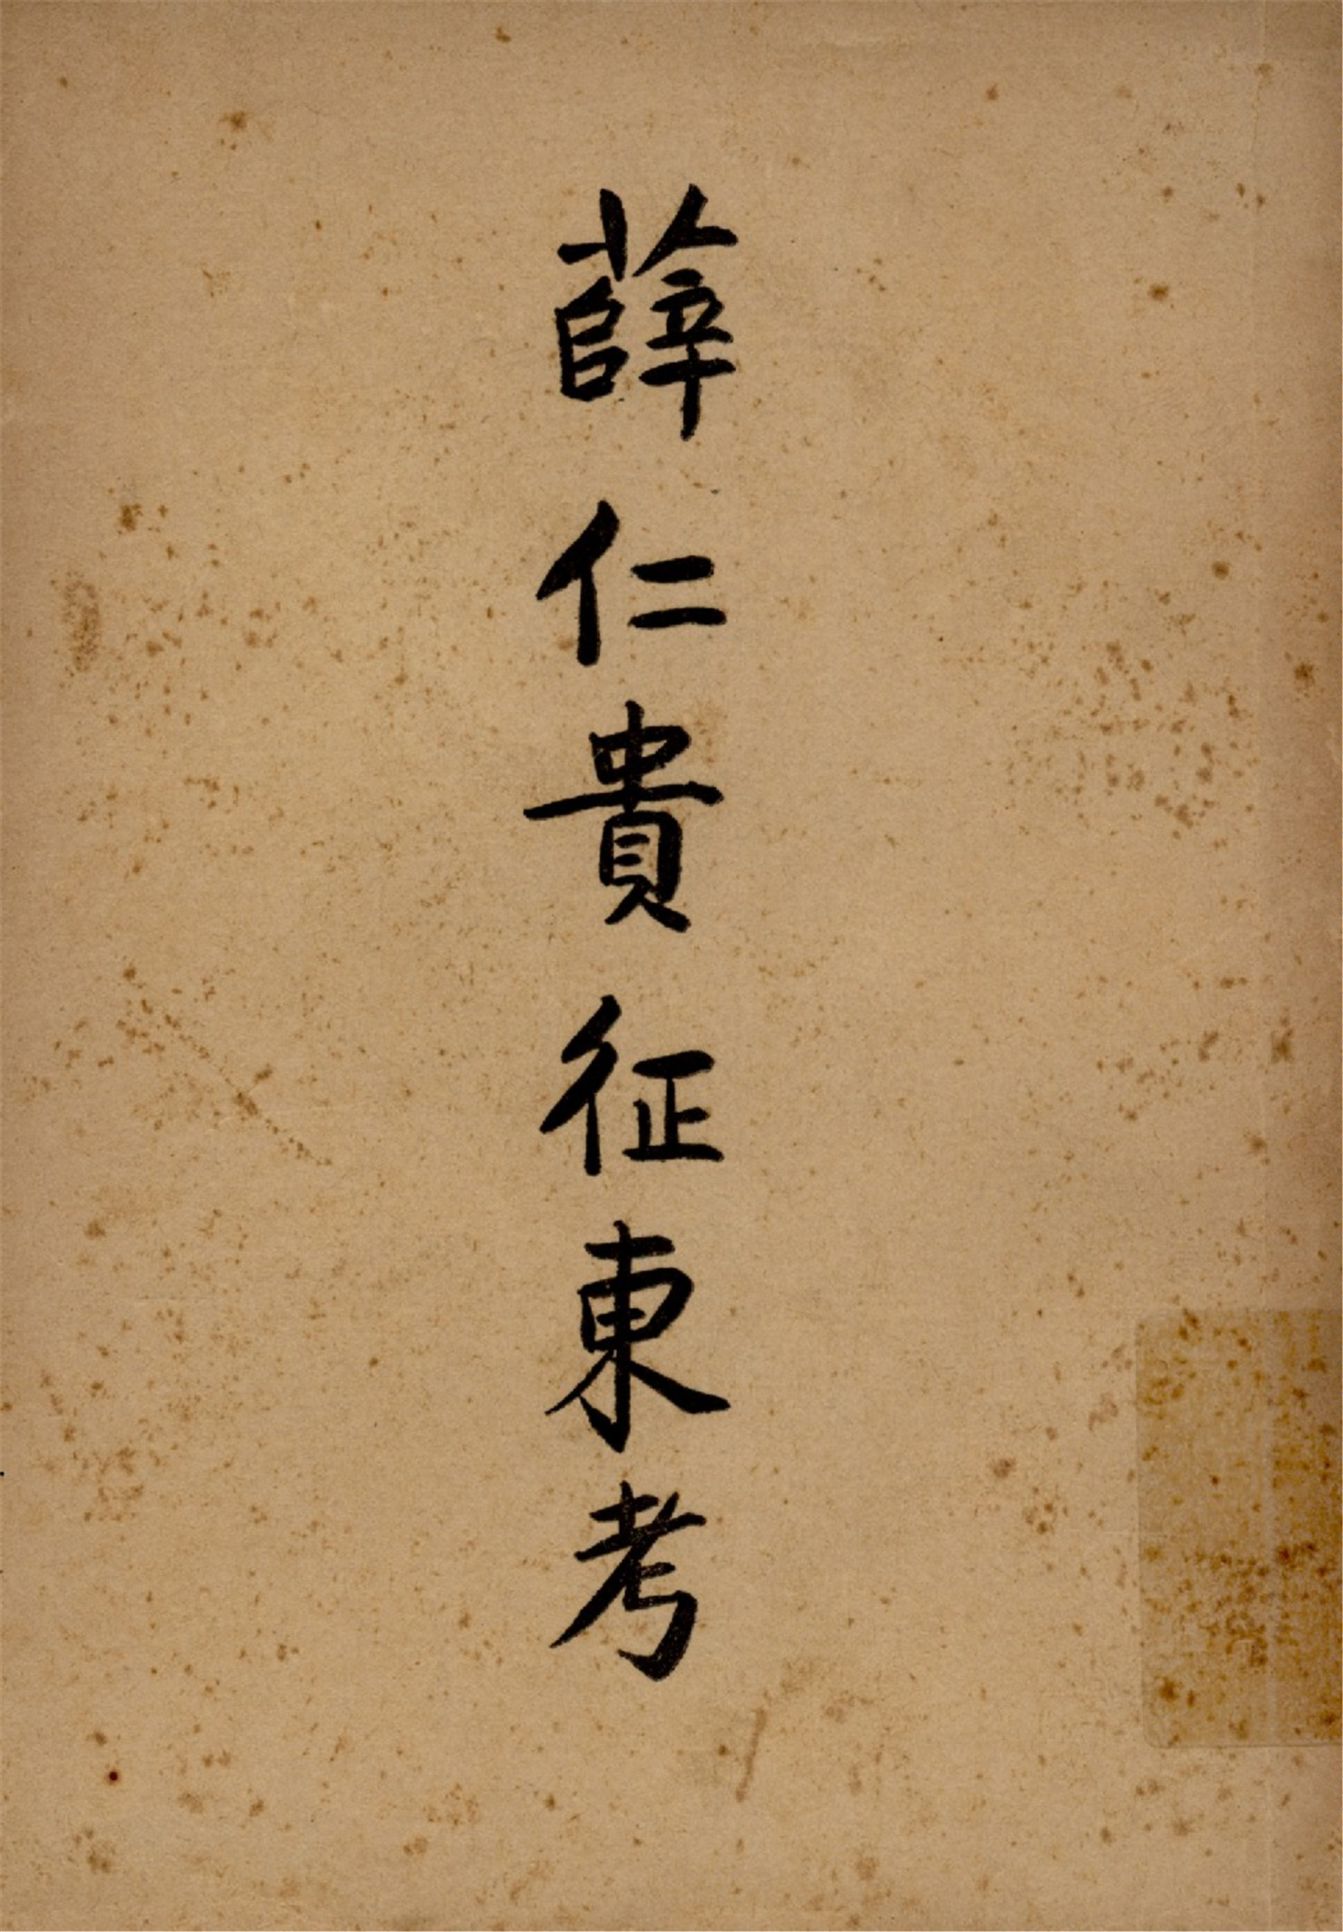 薛仁貴征東考